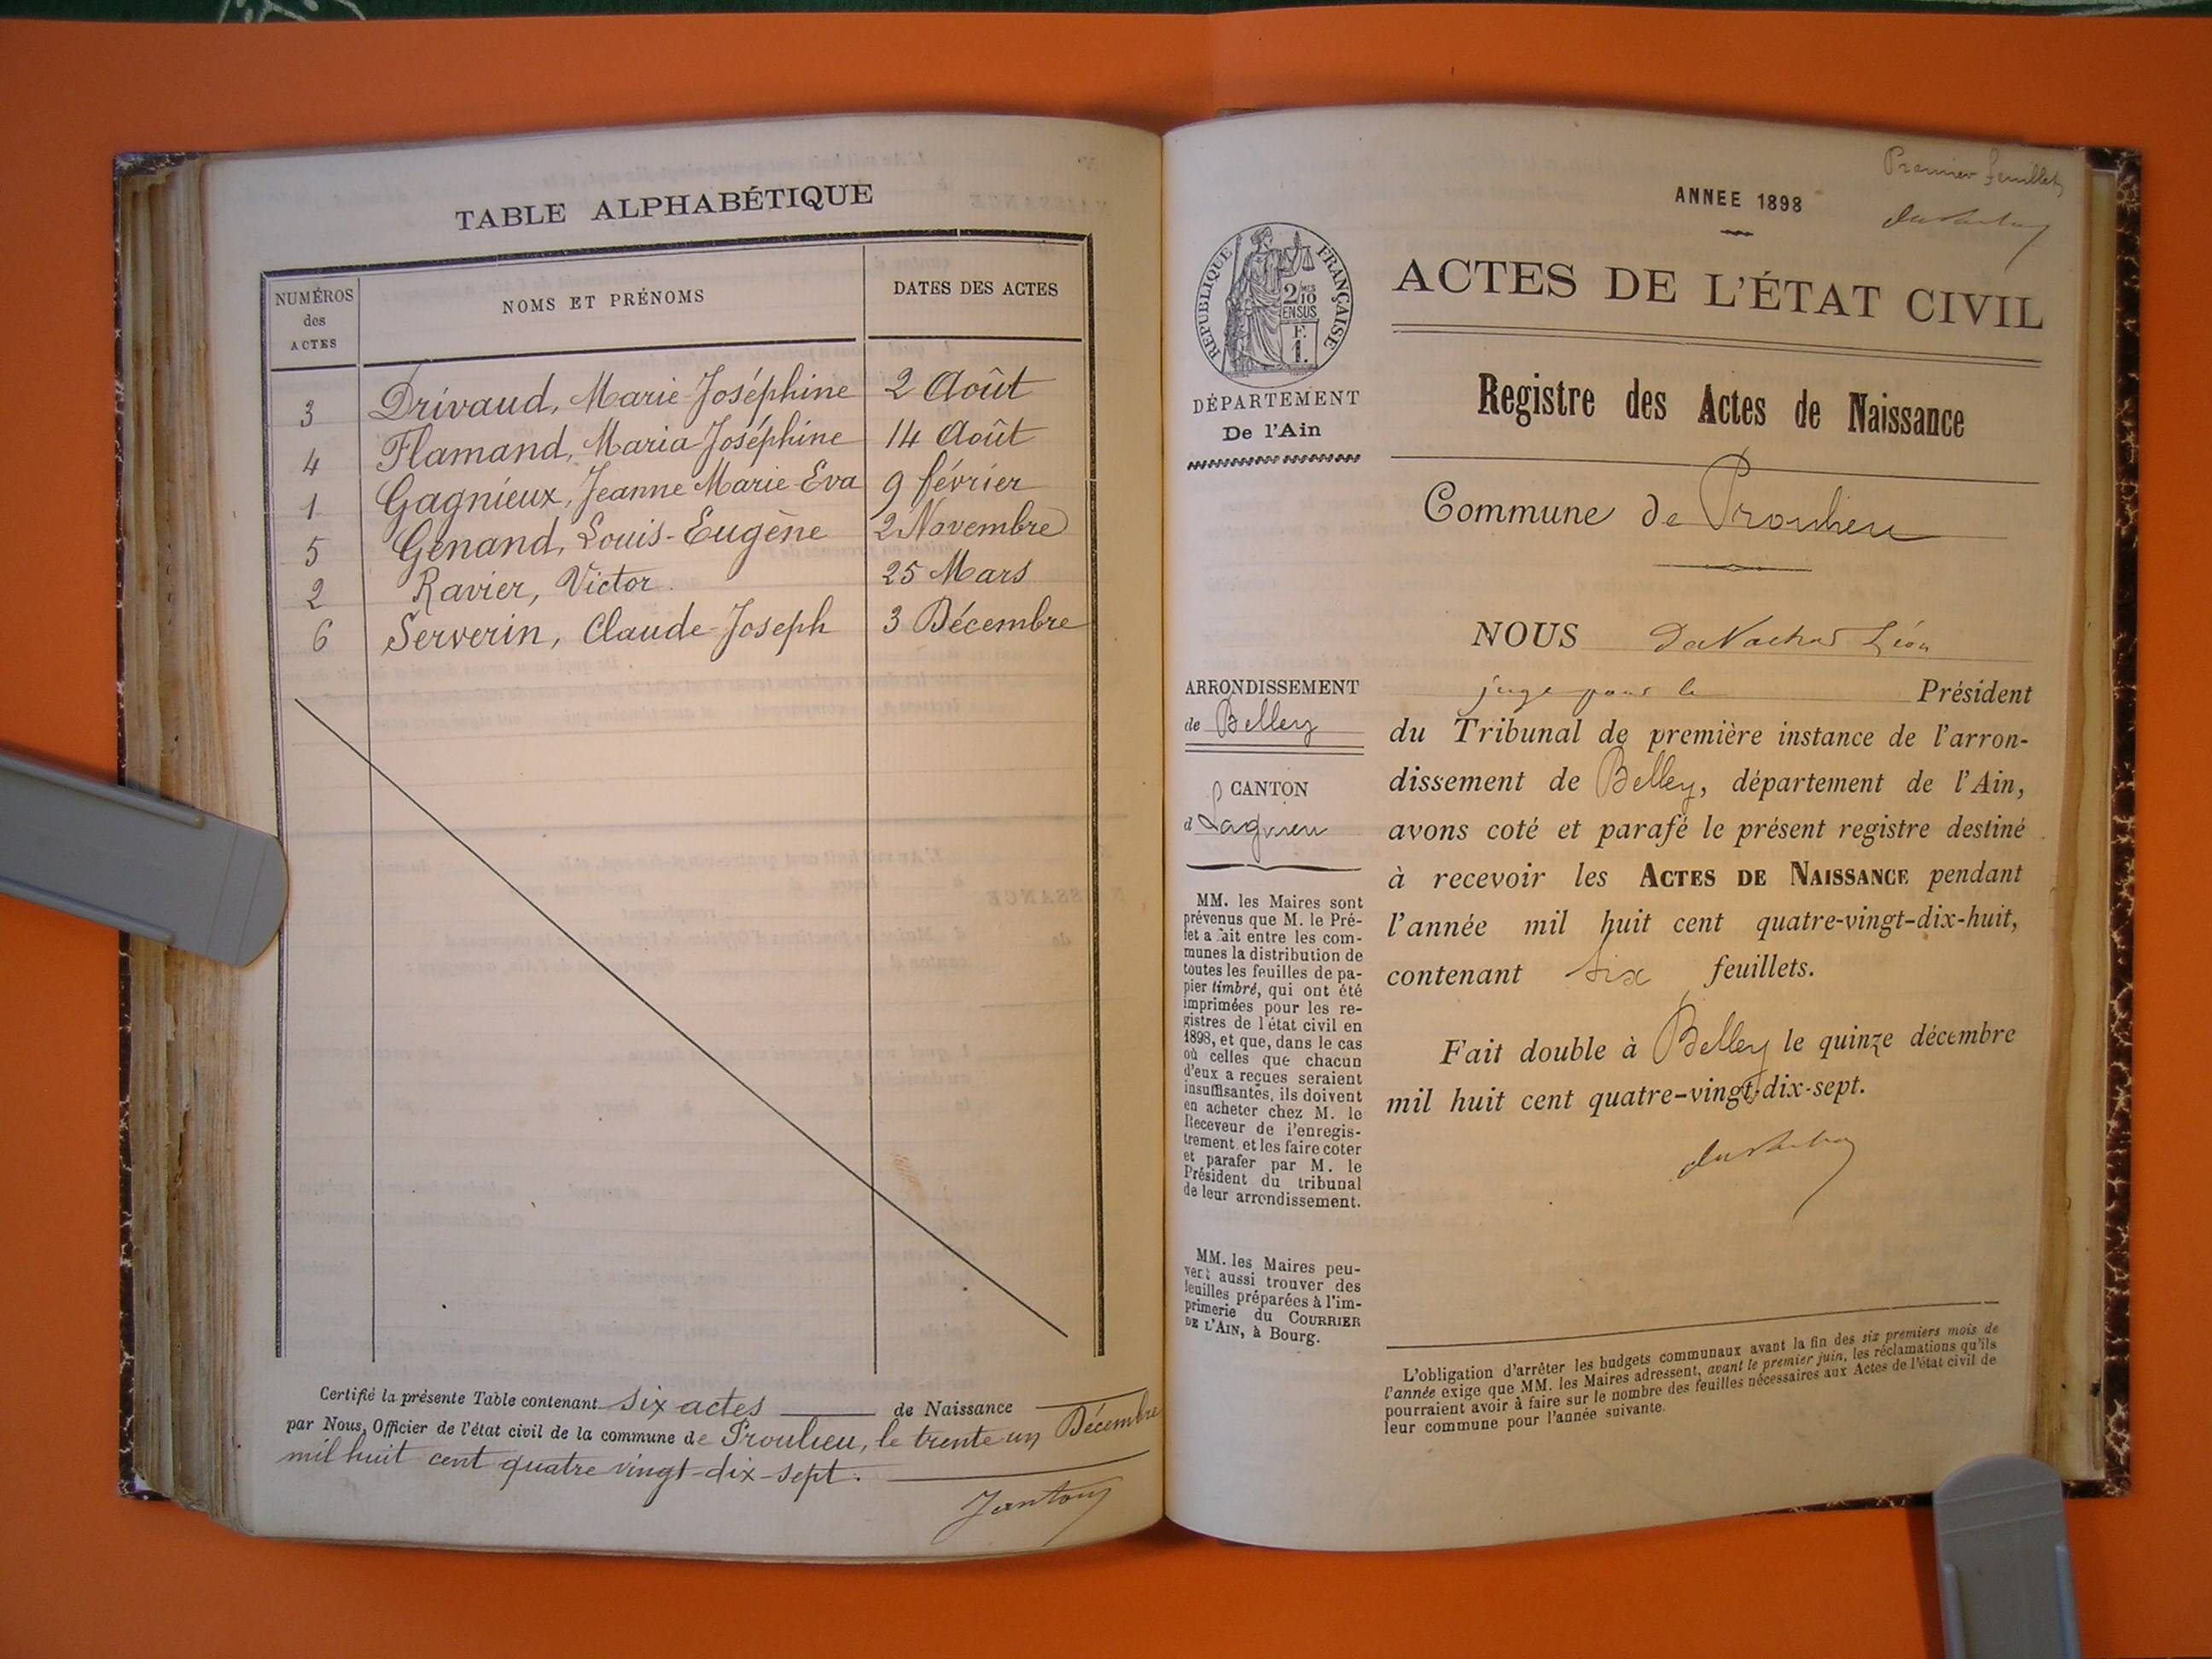 TABLE ALPHABÉTIQUE
NUMÉROS des ACTES
NOMS ET PRÉNOMS
DATES DES ACTES
3 Drivaud, Marie-Joséphine 2 Août
4 Flamand, Maria-Joséphine 14 Août
1 Gagnieux, Jeanne Marie-Eva 9 février
5 Genand, Louis-Eugène 2 Novembre
2 Ravier, Victor 25 Mars
6 Serverin, Claude-Joseph 3 Décembre
Certifié la présente Table contenant six actes de Naissance
par Nous, Officier de l'état civil de la commune de Proulieu, le trente un Décembre
mil huit cent quatre vingt-dix-sept.
Premier feuillet
ANNEE 1898
RÉPUBLIQUE FRANÇAISE
2/10 MES
EN SUS
F.
1.
DÉPARTEMENT
De l'Ain
ACTES DE L'ÉTAT CIVIL
Registre des Actes de Naissance
Commune de Proulieu
NOUS Léon
juge pour le Président
du Tribunal de première instance de l'arron-
dissement de Belley, département de l'Ain,
avons coté et parafé le présent registre destiné
à recevoir les ACTES DE NAISSANCE pendant
l'année mil huit cent quatre-vingt-dix-huit,
contenant six feuillets.
Fait double à Belley le quinze décembre
mil huit cent quatre-vingt-dix-sept.
ARRONDISSEMENT
de Belley
CANTON
d Lagnieu
MM. les Maires sont
prévenus que M. le Pré-
fet a fait entre les com-
munes la distribution de
toutes les feuilles de pa-
pier timbré, qui ont été
imprimées pour les re-
gistres de l'état civil en
1898, et que, dans le cas
où celles que chacun
d'eux a reçues seraient
insuffisantes, ils doivent
en acheter chez M. le
Receveur de l'enregis-
trement et les faire coter
et parafer par M. le
Président du tribunal
de leur arrondissement.
MM. les Maires peu-
vent aussi trouver des
feuilles préparées à l'im-
primerie du COURRIER
DE L'AIN, à Bourg.
L'obligation d'arrêter les budgets communaux avant la fin des six premiers mois de
l'année exige que MM. les Maires adressent, avant le premier juin, les réclamations qu'ils
pourraient avoir à faire sur le nombre des feuilles nécessaires aux Actes de l'état civil de
leur commune pour l'année suivante.